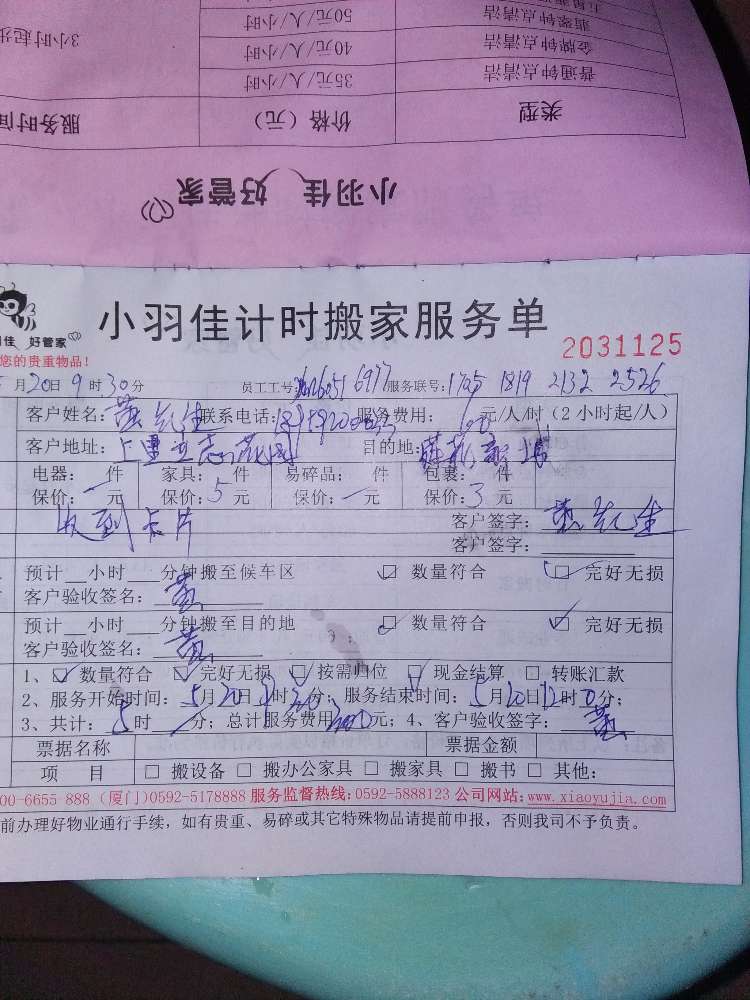 3小时起步
50元/人/小时
翡翠钟点清洁
40元/人/小时
金牌钟点清洁
35元/人/小时
普通钟点清洁
服务时间
价格（元）
类型
小羽佳 好管家
小羽佳计时搬家服务单
佳 好管家
2031125
您的贵重物品！
月20日9时30分 员工工号: 6917 服务联号: 1705 1819 2132 2526
客户姓名: 先生 联系电话: 服务费用: 60 元/人/时（2小时起/人）
客户地址: 目的地:
电器: 件 家具: 件 易碎品: 件 包裹: 件
保价: 一 元 保价: 5 元 保价: 一 元 保价: 3 元
收到卡片 客户签字: 先生
客户签字:
预计__小时___分钟搬至候车区 ☑ 数量符合 ☑ 完好无损
客户验收签名:
预计__小时___分钟搬至目的地 ☑ 数量符合 ☑ 完好无损
客户验收签名:
1、☑ 数量符合 ☑ 完好无损 ☑ 按需归位 ☑ 现金结算 □ 转账汇款
2、服务开始时间: 5月20日 时30分; 服务结束时间: 5月20日12时0分;
3、共计: 5时 一 分; 总计服务费用 元; 4、客户验收签字:
票据名称 票据金额
项 目 □ 搬设备 □ 搬办公家具 □ 搬家具 □ 搬书 □ 其他:
00-6655 888（厦门）0592-5178888 服务监督热线:0592-5888123 公司网站:www.xiaoyujia.com
前办理好物业通行手续，如有贵重、易碎或其它特殊物品请提前申报，否则我司不予负责。